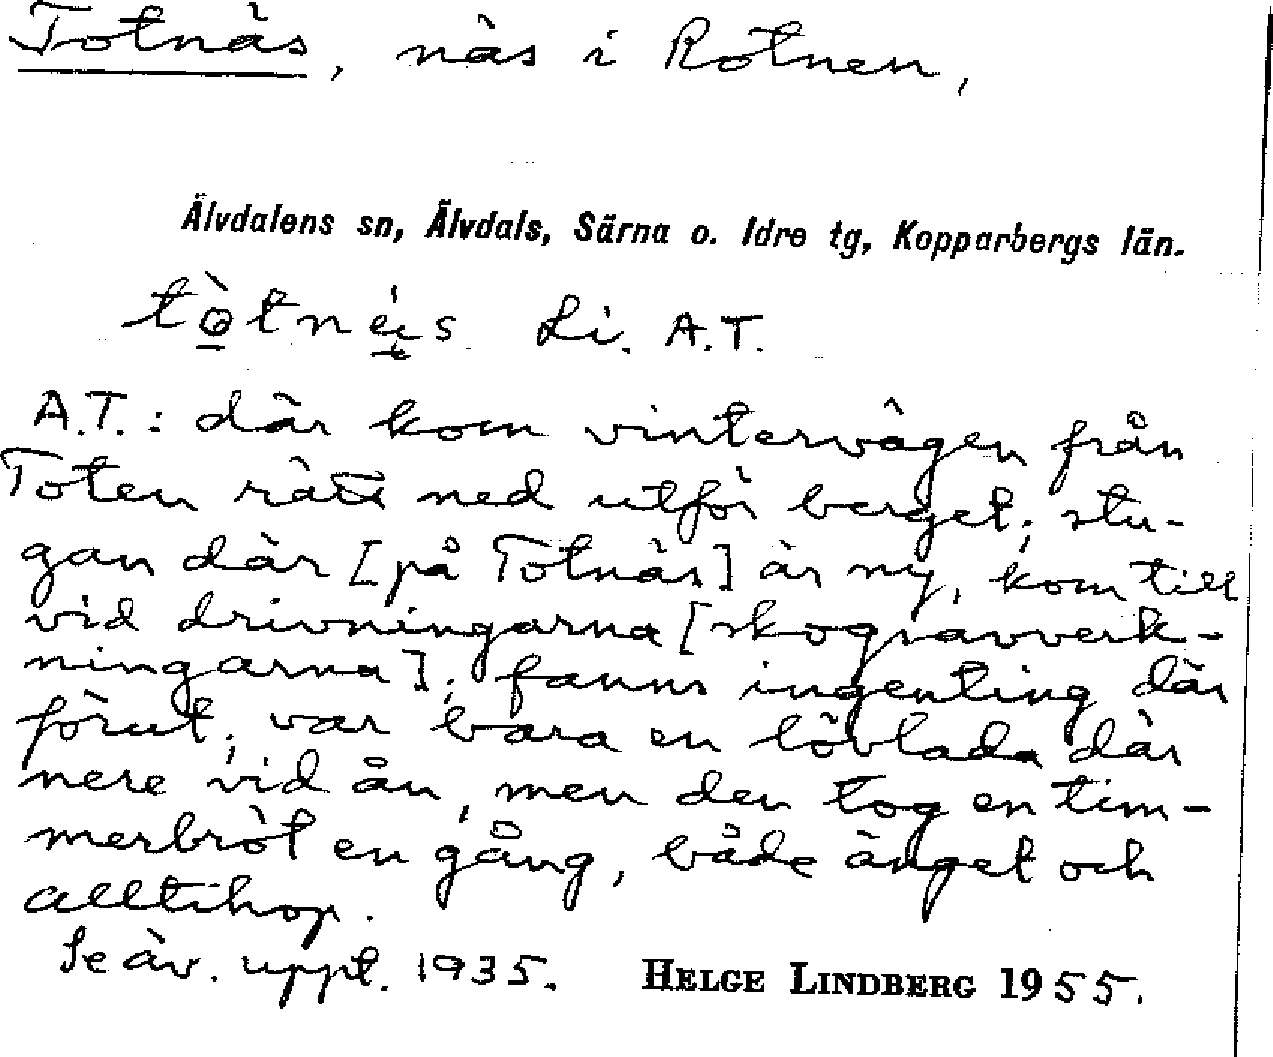 Totnäs, näs i Rötnen,
Älvdalens sn, Älvdals, Särna o. Idre tg, Kopparbergs län.
Li. A.T.
A.T.: där kom vintervägen från
Toten rätt ned utför berget; stu-
gan där [på Totnäs] är ny, kom till
vid drivningarna [skogsavverk-
ningarna]; fanns ingenting där
förut; var bara en lövlada där
nere vid ån, men den tog en tim-
merbröt en gång, både änget och
alltihop.
Se äv. uppt. 1935. HELGE LINDBERG 1955.